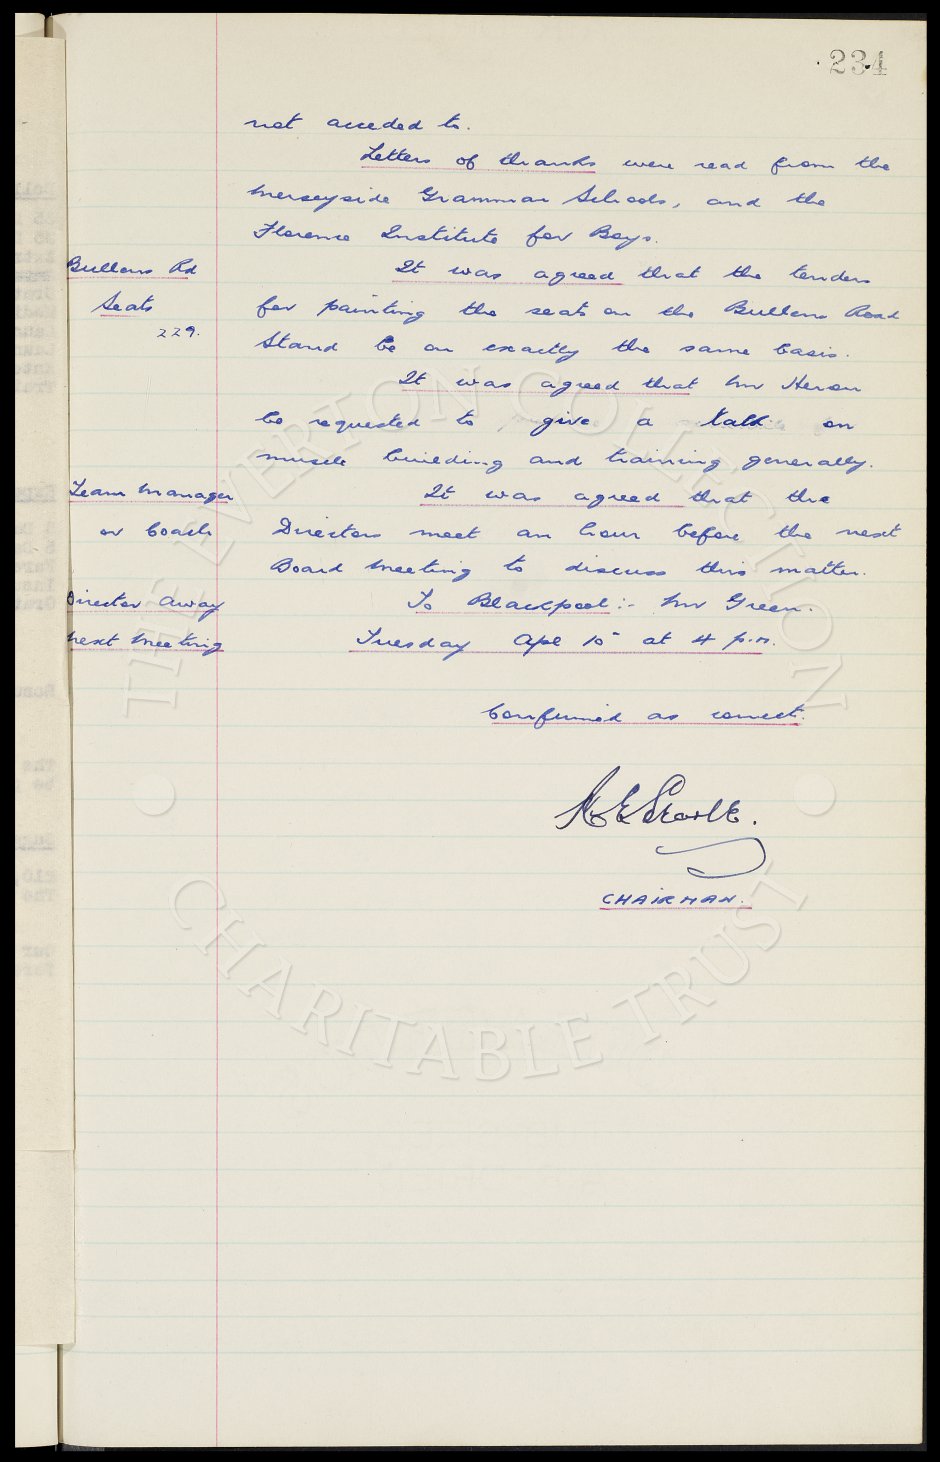 234
not acceded to.
Letters of thanks were read from the
Merseyside Grammar Schools, and the
Florence Institute for Boys.
Bullens Rd It was agreed that the tenders
Seats for painting the seats on the Bullens Road
229.
Stand be on exactly the same basis.
It was agreed that Mr Heron
be requested to give a talk on
muscle building and training generally.
Team Manager It was agreed that the
or Coach Directors meet an hour before the next
Board Meeting to discuss this matter.
Director Away To Blackpool:- Mr Green.
Next Meeting Tuesday Apl 10 at 4 p.m.
Confirmed as correct.
CHAIRMAN.
THE EVERTON COLLECTION
CHARITABLE TRUST